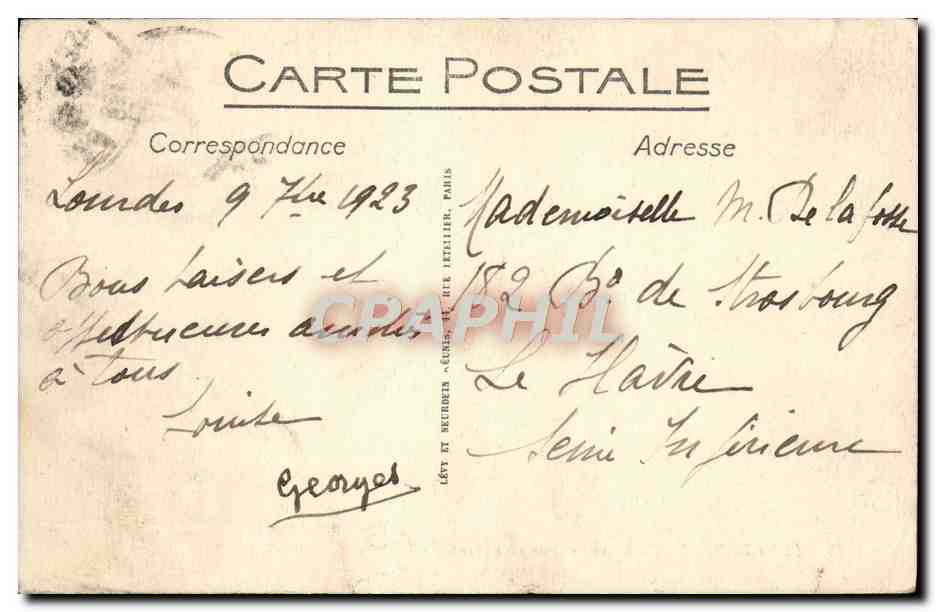 CARTE POSTALE
Correspondance
Adresse
Lourdes 9 7bre 1923
Bons baisers et
affectueuses amitiés
à tous
Louise
Georges
LÉVY ET NEURDEIN RÉUNIS, 44, RUE LETELLIER, PARIS
Mademoiselle M. Delafosse
182 Bd de Strasbourg
Le Hâvre
Seine Inférieure
CPAPHIL